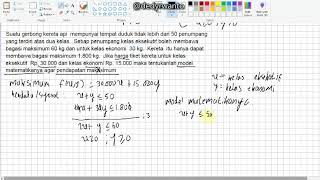 @dedywrianto
Suatu gerbong kereta api mempunyai tempat duduk tidak lebih dari 50 penumpang
yang terdiri atas dua kelas. Setiap penumpang kelas eksekutif boleh membawa
bagasi maksimum 60 kg dan untuk kelas ekonomi 30 kg. Kereta itu hanya dapat
membawa bagasi maksimum 1.800 kg. Jika harga tiket kereta untuk kelas
eksekutif Rp. 30.000 dan kelas ekonomi Rp. 15.000 maka tentukanlah model
matematikanya agar pendapatan maksimum
maksimum f(x,y) = 30.000x + 15.000y
kendala / syarat
x+y ≤ 50
60x + 30y ≤ 1.800 : 3
x+y ≤ 60
x≥0 , y≥0
x = kelas eksekutif
y = kelas ekonomi
model matematikanya
x+y ≤ 50